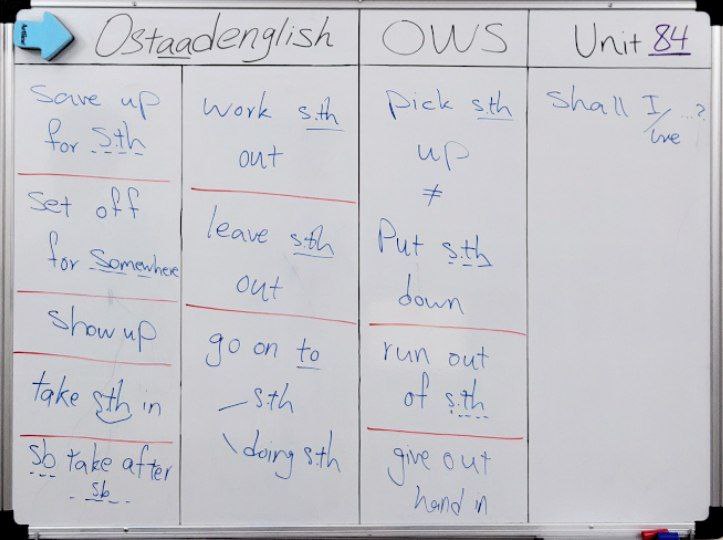 Ostaadenglish
OWS
Unit 84
Save up
for s.th
Set off
for Somewhere
show up
take sth in
sb take after
sb
work s.th
out
leave s.th
out
go on to
s.th
doing s.th
pick s.th
up
≠
Put s.th
down
run out
of s.th
give out
hand in
Shall I/we ...?